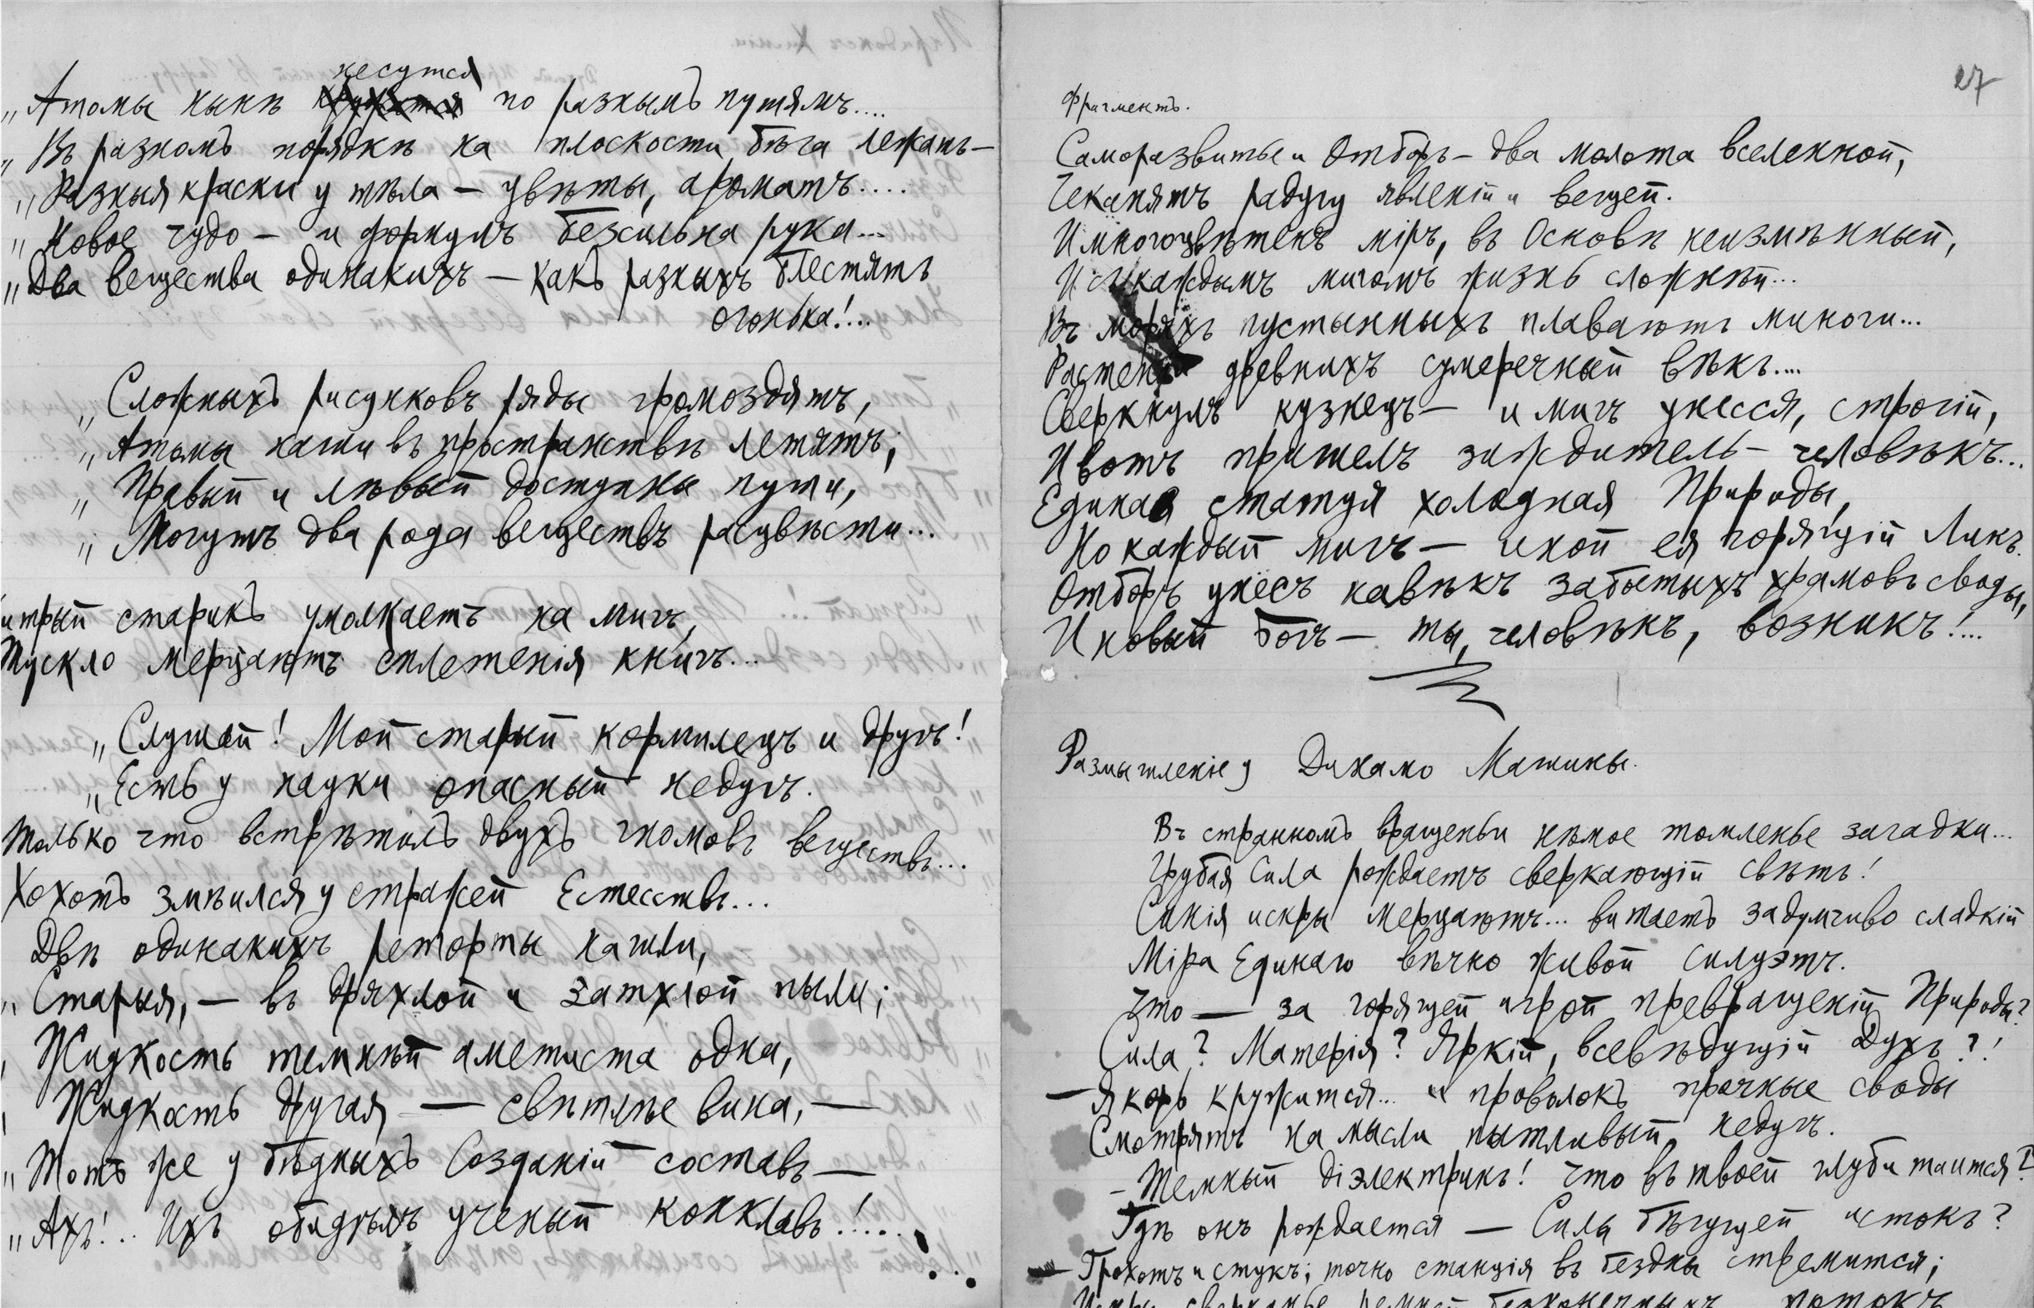 „Атомы нынѣ несутся по разнымъ путямъ....
„Въ разномъ порядкѣ на плоскости бѣга лежатъ—
„Разныя краски у тѣла — цвѣты, ароматъ....
„Новое чудо — и формулъ безсильна рука...
„Два вещества одинакихъ — какъ разныхъ блестятъ
огонька!...
„Сложныхъ рисунковъ ряды громоздятъ,
„Атомы наши въ пространствѣ летятъ;
„Правый и лѣвый доступны пути,
„Могутъ два рода веществъ расцвѣсти...
итрый старикъ умолкаетъ на мигъ,
Тускло мерцаютъ сплетенія книгъ...
„Слушай! Мой старый кормилецъ и другъ!
„Есть у науки опасный недугъ.
только что встрѣтилъ двухъ гномовъ веществъ...
Хохотъ змѣился у стражей Естествъ...
Двѣ одинакихъ реторты нашли,
„Старыя, — въ дряхлой и затхлой пыли;
Жидкость темнѣй аметиста одна,
Жидкость другая — свѣтлѣе вина, —
„Тотъ же у бѣдныхъ Созданій составъ —
„Ахъ!.. Ихъ обидѣлъ ученый конклавъ!.....
27
Фрагментъ.
Саморазвитье и Отборъ — два молота вселенной,
Чеканятъ радугу явленій и вещей.
И многоцвѣтенъ міръ, въ Основѣ неизмѣнный,
И съ каждымъ мигомъ жизнь сложнѣй...
Въ моряхъ пустынныхъ плаваютъ миноги...
Растеній древнихъ сумеречный вѣкъ....
Сверкнулъ кузнецъ — и мигъ унесся, строгій,
И вотъ пришелъ зиждитель — человѣкъ...
Единая статуя холодная Природы,
Но каждый мигъ — иной ея горящій Ликъ.
Отборъ унесъ навѣкъ забытыхъ храмовъ своды,
И новый Богъ — ты, человѣкъ, возникъ!...
Размышленіе у Динамо Машины.
Въ странномъ вращеньи нѣмое томленье загадки...
Грубая Сила рождаетъ сверкающій свѣтъ!
Синія искры мерцаютъ... витаетъ задумчиво сладкій
Міра Единаго вѣчно живой силуэтъ.
Что — за горящей игрой превращеній Природы?
Сила? Матерія? Яркій, всевѣдущій Духъ?!
— Якорь кружится... и проволокъ прочные своды
Смотрятъ на мысли пытливый недугъ.
— Темный діэлектрикъ! Что въ твоей глуби таится?
Гдѣ онъ рождается — Силы бѣгущей истокъ?
— Грохотъ и стукъ; точно станція въ бездны стремится;
Искры, сверканье ремней безконечныхъ потокъ